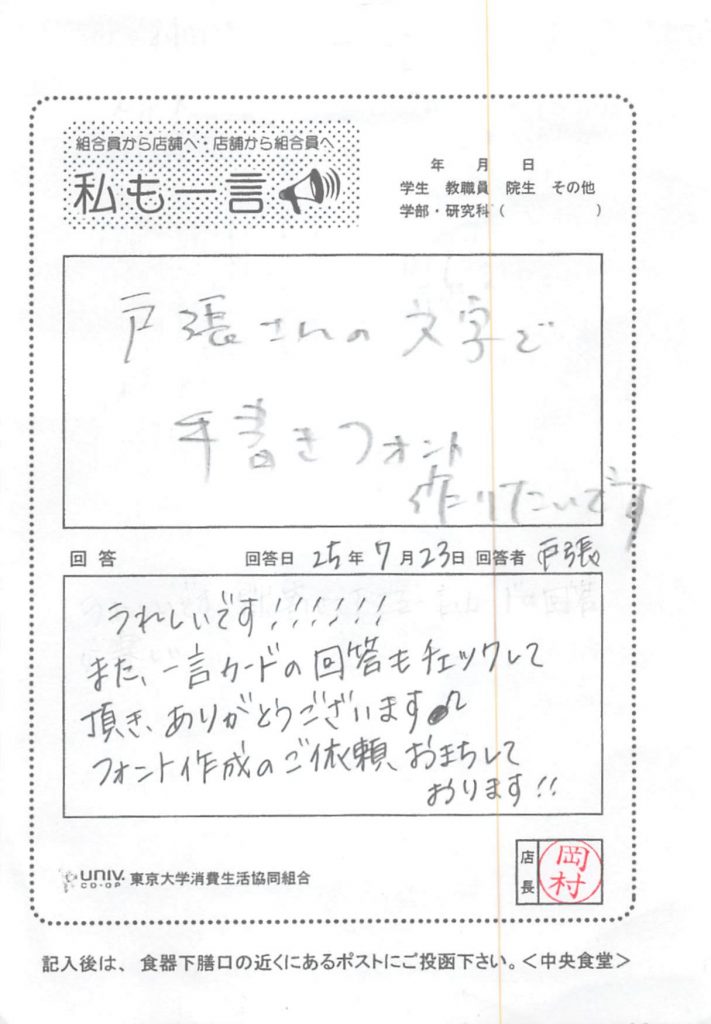 組合員から店舗へ・店舗から組合員へ
私も一言
年 月 日
学生 教職員 院生 その他
学部・研究科( )
戸張さんの文字で
手書きフォント
作りたいです
回答 回答日 25年7月23日 回答者 戸張
うれしいです!!!!!!
また、一言カードの回答もチェックして
頂き、ありがとうございます♪
フォント作成のご依頼、おまちして
おります!!
UNIV. CO-OP 東京大学消費生活協同組合
店長 岡村
記入後は、食器下膳口の近くにあるポストにご投函下さい。<中央食堂>